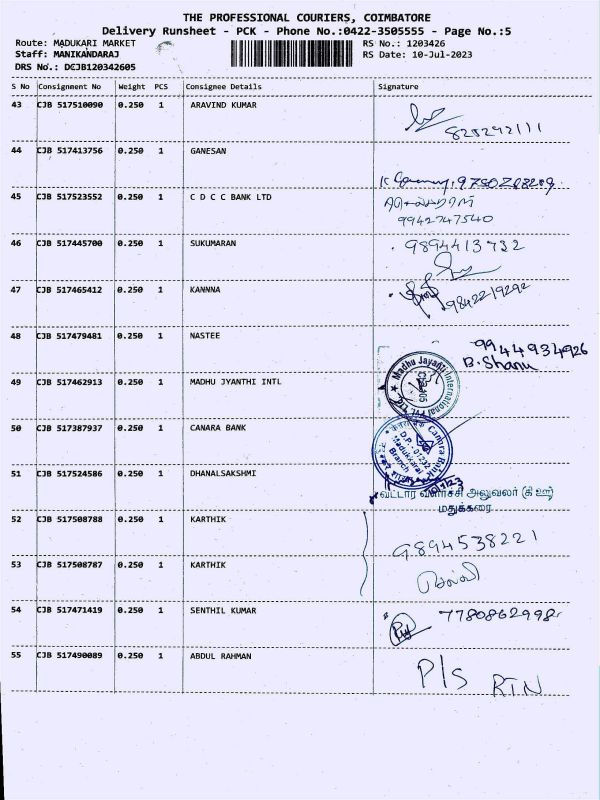 THE PROFESSIONAL COURIERS, COIMBATORE
Delivery Runsheet - PCK - Phone No.:0422-3505555 - Page No.:5
Route: MADUKARI MARKET RS No.: 1203426
Staff: MANIKANDARAJ RS Date: 10-Jul-2023
DRS No.: DCJB120342605
S No Consignment No Weight PCS Consignee Details Signature
43 CJB 517510090 0.250 1 ARAVIND KUMAR
44 CJB 517413756 0.250 1 GANESAN
45 CJB 517523552 0.250 1 C D C C BANK LTD
9942747540
46 CJB 517445700 0.250 1 SUKUMARAN 9894413732
47 CJB 517465412 0.250 1 KANNNA 9842219292
48 CJB 517479481 0.250 1 NASTEE 9944934926
B. Shanu
49 CJB 517462913 0.250 1 MADHU JYANTHI INTL Madhu Jayanti International
50 CJB 517387937 0.250 1 CANARA BANK Canara Bank
Madukkarai
Branch
51 CJB 517524586 0.250 1 DHANALSAKSHMI
வட்டார வளர்ச்சி அலுவலர் (கி ஊ)
மதுக்கரை
52 CJB 517508788 0.250 1 KARTHIK 9894538221
53 CJB 517508787 0.250 1 KARTHIK செல்வி
54 CJB 517471419 0.250 1 SENTHIL KUMAR 7780862998
55 CJB 517490089 0.250 1 ABDUL RAHMAN P/S RTN